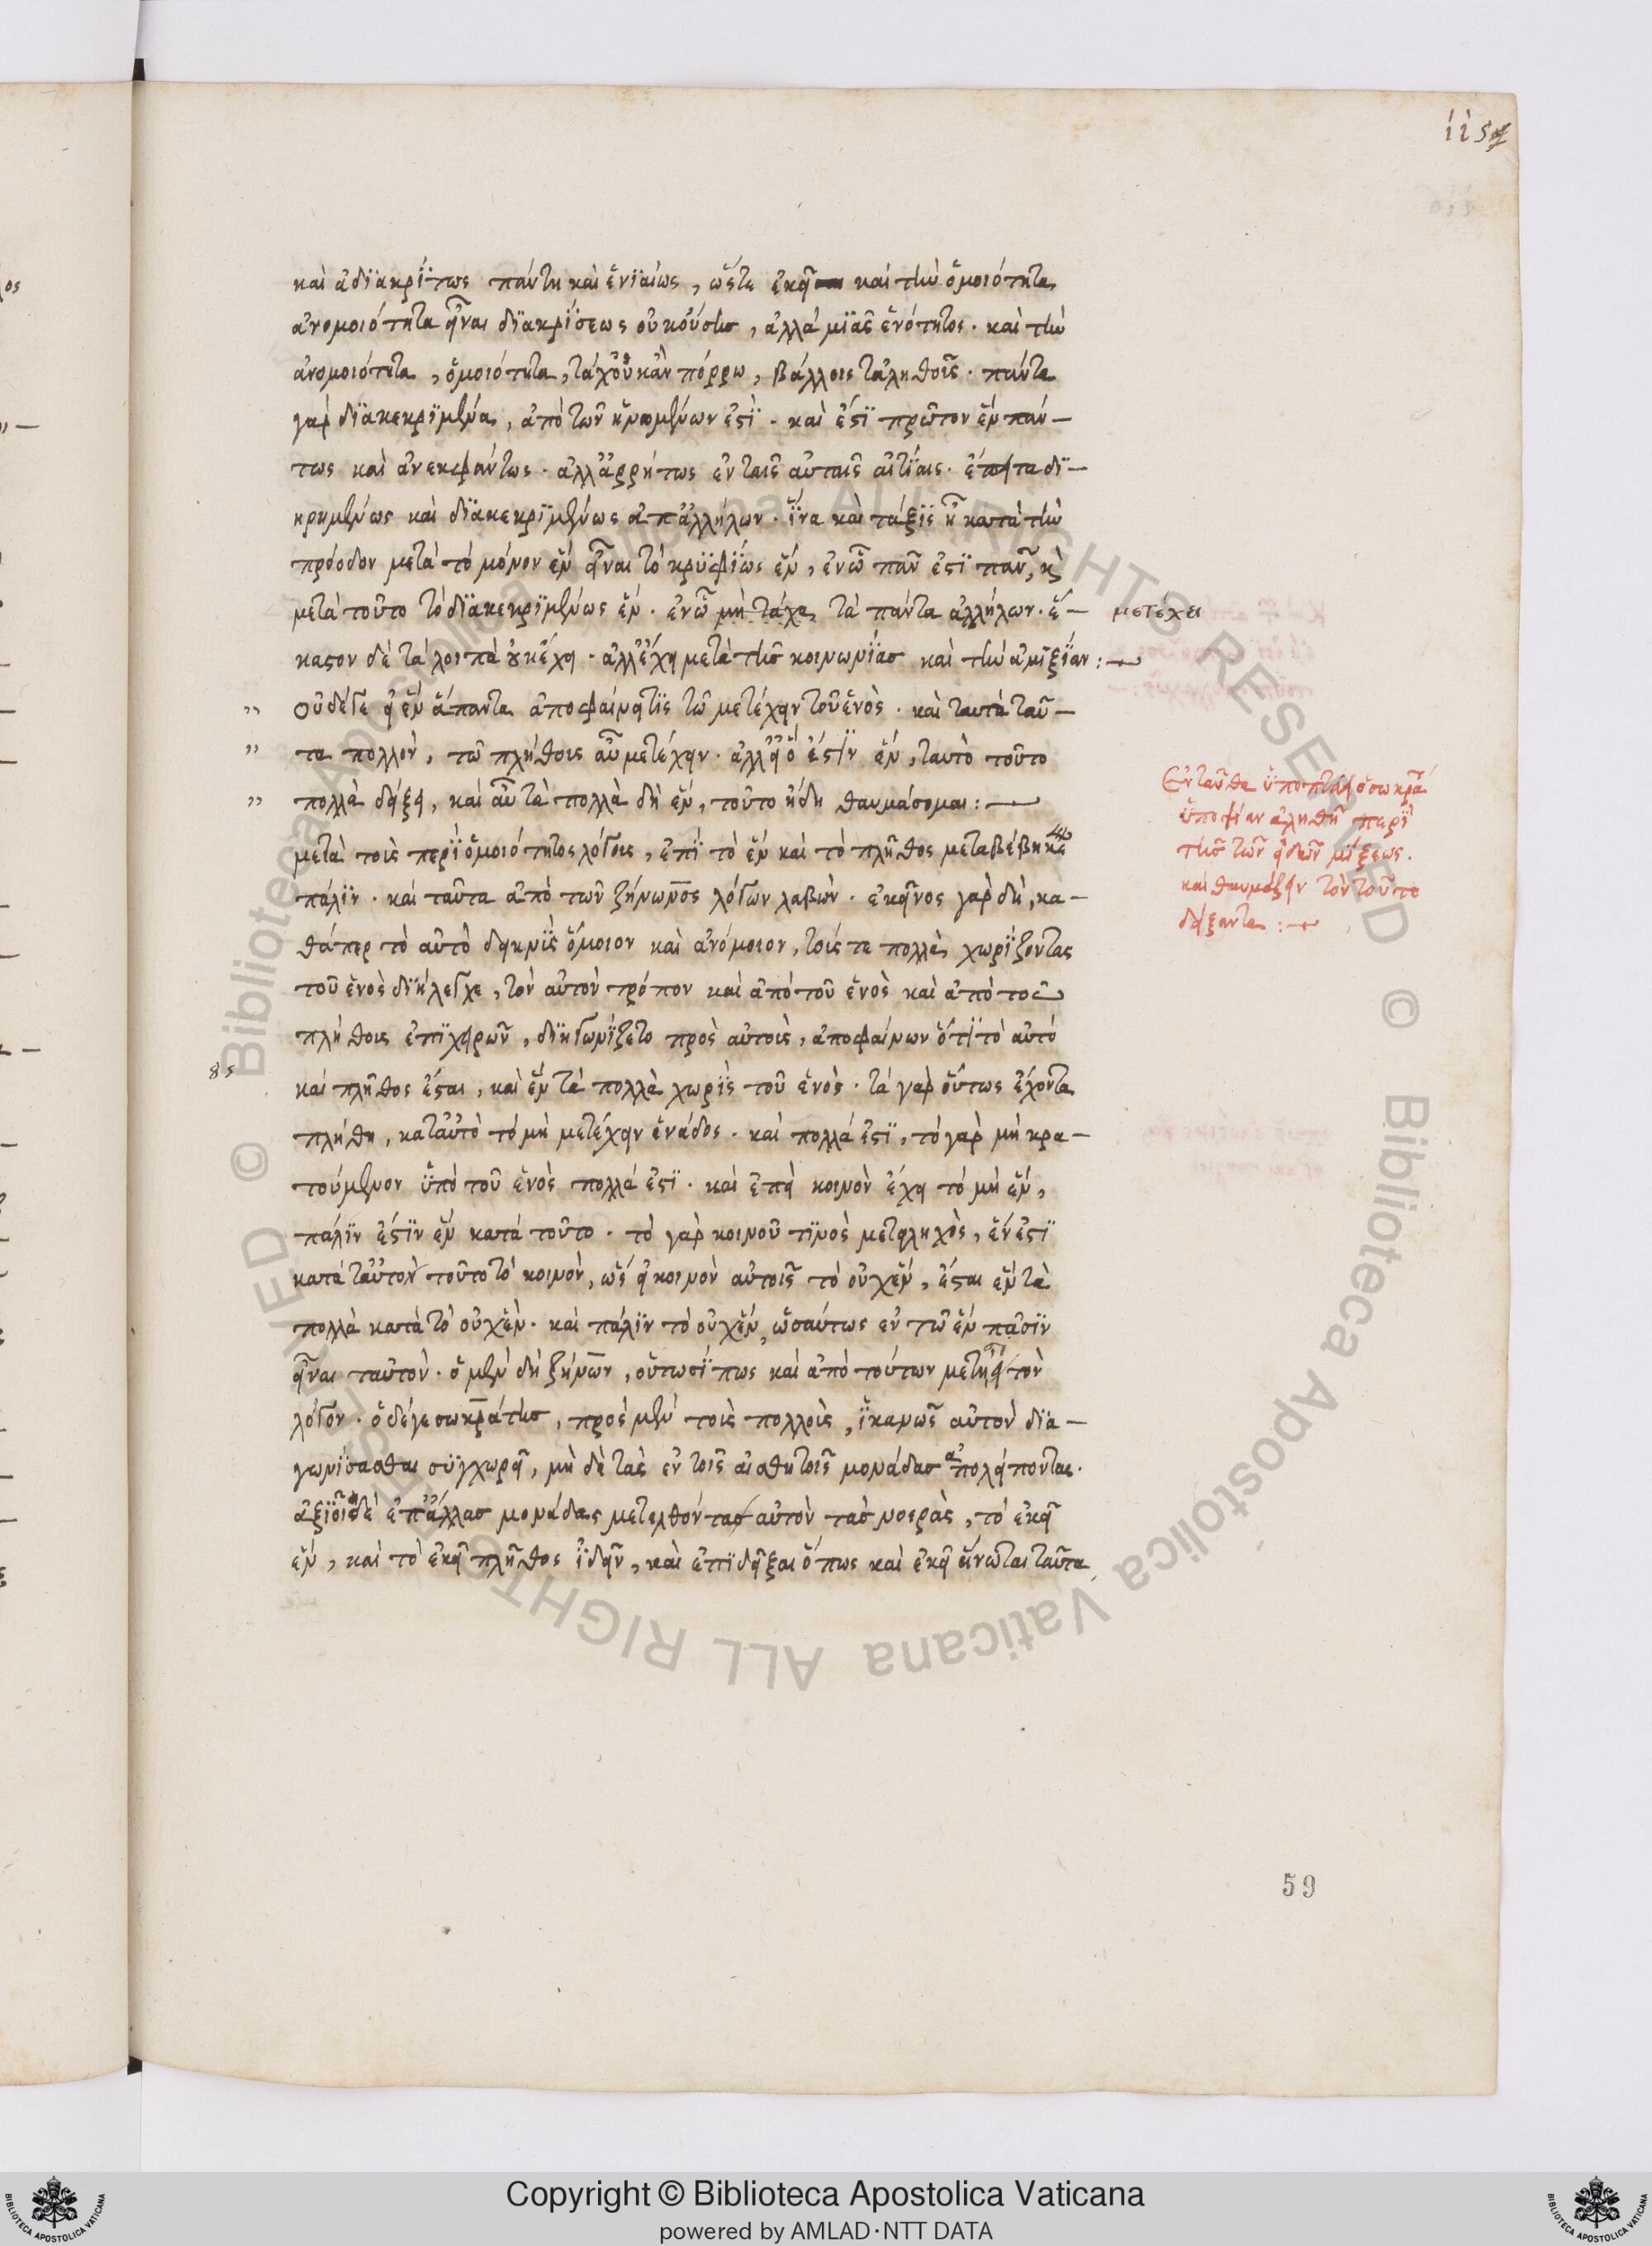 115
καὶ ἀδιακρίτως πάντη καὶ ἑνιαίως, ὥστε ἐκεῖ καὶ τὴν ὁμοιότητα
ἀνομοιότητα εἶναι διακρίσεως οὐκ οὔσης, ἀλλὰ μιᾶς ἑνότητος. καὶ τὴν
ἀνομοιότητα, ὁμοιότητα, τάχ' οὖν κἂν πόρρω, βάλλοις τἀληθοῦς. πάντα
γὰρ διακεκριμένα, ἀπὸ τῶν ἡνωμένων ἐστὶ. καὶ ἔστι πρῶτον ἓν παν-
τως καὶ ἀνεκφάντως. ἀλλ' ἀρρήτως ἐν ταῖς αὐταῖς αἰτίαις. ἔπειτα δι-
ηρημένως καὶ διακεκριμένως ἀπ' ἀλλήλων. ἵνα καὶ τάξις ᾖ κατὰ τὴν
πρόοδον μετὰ τὸ μόνον ἓν εἶναι τὸ κρυφίως ἓν, ἐν ᾧ πᾶν ἐστὶ πᾶν, κὶ
μετὰ τοῦτο τὸ διακεκριμένως ἓν. ἐν ᾧ μὴ τάχα τὰ πάντα ἀλλήλων. ἕ- μετέχει
καστον δὲ τὰ λοιπὰ οὐκ ἔχει. ἀλλ' ἔχει μετὰ τῆς κοινωνίας καὶ τὴν ἀμιξίαν:
οὐδέ γε εἰ ἓν ἅπαντα ἀποφαίνει τὶς τῷ μετέχειν τοῦ ἑνὸς. καὶ ταυτὰ ταῦ-
τα πολλὸν, τῷ πλήθους αὖ μετέχειν. ἀλλ' εἰ ὃ ἔστιν ἓν, ταυτὸ τοῦτο
πολλὰ δείξει, καὶ αὖ τὰ πολλὰ δὴ ἓν, τοῦτο ἤδη θαυμάσομαι:
Ἐνταῦθα ὑποπτεύει ὁ σωκρά
ὑποψίαν ἀληθῆ περὶ
τῆς τῶν εἰδῶν μίξεως.
καὶ θαυμάζειν τὸν τοῦτο
δείξαντα:
μετὰ τοὺς περὶ ὁμοιότητος λόγους, ἐπὶ τὸ ἓν καὶ τὸ πλῆθος μεταβέβηκε
πάλιν. καὶ ταῦτα ἀπὸ τῶν ζήνωνος λόγων λαβὼν. ἐκεῖνος γὰρ δὴ, κα-
θάπερ τὸ αὐτὸ δεικνὺς ὅμοιον καὶ ἀνόμοιον, τούς τε πολλὰ χωρίζοντας
τοῦ ἑνὸς διήλεγχε, τὸν αὐτὸν τρόπον καὶ ἀπὸ τοῦ ἑνὸς καὶ ἀπὸ τοῦ
πλήθους ἐπιχειρῶν, διηγωνίζετο πρὸς αὐτοὺς, ἀποφαίνων ὅτι τὸ αὐτὸ
καὶ πλῆθος ἔσται, καὶ ἓν τὰ πολλὰ χωρὶς τοῦ ἑνὸς. τὰ γὰρ οὕτως ἔχοντα
πλήθη, κατ' αὐτὸ τὸ μὴ μετέχειν ἑνάδος. καὶ πολλά ἐστι, τὸ γὰρ μὴ κρα-
τούμενον ὑπὸ τοῦ ἑνὸς πολλά ἐστι. καὶ ἐπεὶ κοινὸν ἔχει τὸ μὴ ἓν,
πάλιν ἐστὶν ἓν κατὰ τοῦτο. τὸ γὰρ κοινοῦ τινὸς μετειληχὸς, ἕν ἐστι
κατὰ ταὐτὸν τοῦτο τὸ κοινὸν, ὥστ' εἰ κοινὸν αὐτοῖς τὸ οὐχ ἓν, ἔσται ἓν τὰ
πολλὰ κατὰ τὸ οὐχ ἓν. καὶ πάλιν τὸ οὐχ ἓν, ὡσαύτως ἐν τῷ ἓν πᾶσιν
εἶναι ταὐτὸν. ὁ μὲν δὴ ζήνων, οὑτωσί πως καὶ ἀπὸ τούτων μετῄει τὸν
λόγον. ὁ δέ γε σωκράτης, πρὸς μὲν τοὺς πολλοὺς, ἱκανῶς αὐτὸν δια-
γωνίσασθαι συγχωρεῖ, μὴ δὲ τὰς ἐν τοῖς αἰσθητοῖς μονάδας ἀπολείποντας.
ἀξιοῖ δὲ ἐπ' ἄλλας μονάδας μετελθόντας αὐτὸν τὰς νοερὰς, τὸ ἐκεῖ
ἓν, καὶ τὸ ἐκεῖ πλῆθος ἰδεῖν, καὶ ἐπιδεῖξαι ὅπως καὶ ἐκεῖ ἥνωται ταῦτα
59
Copyright © Biblioteca Apostolica Vaticana
powered by AMLAD·NTT DATA